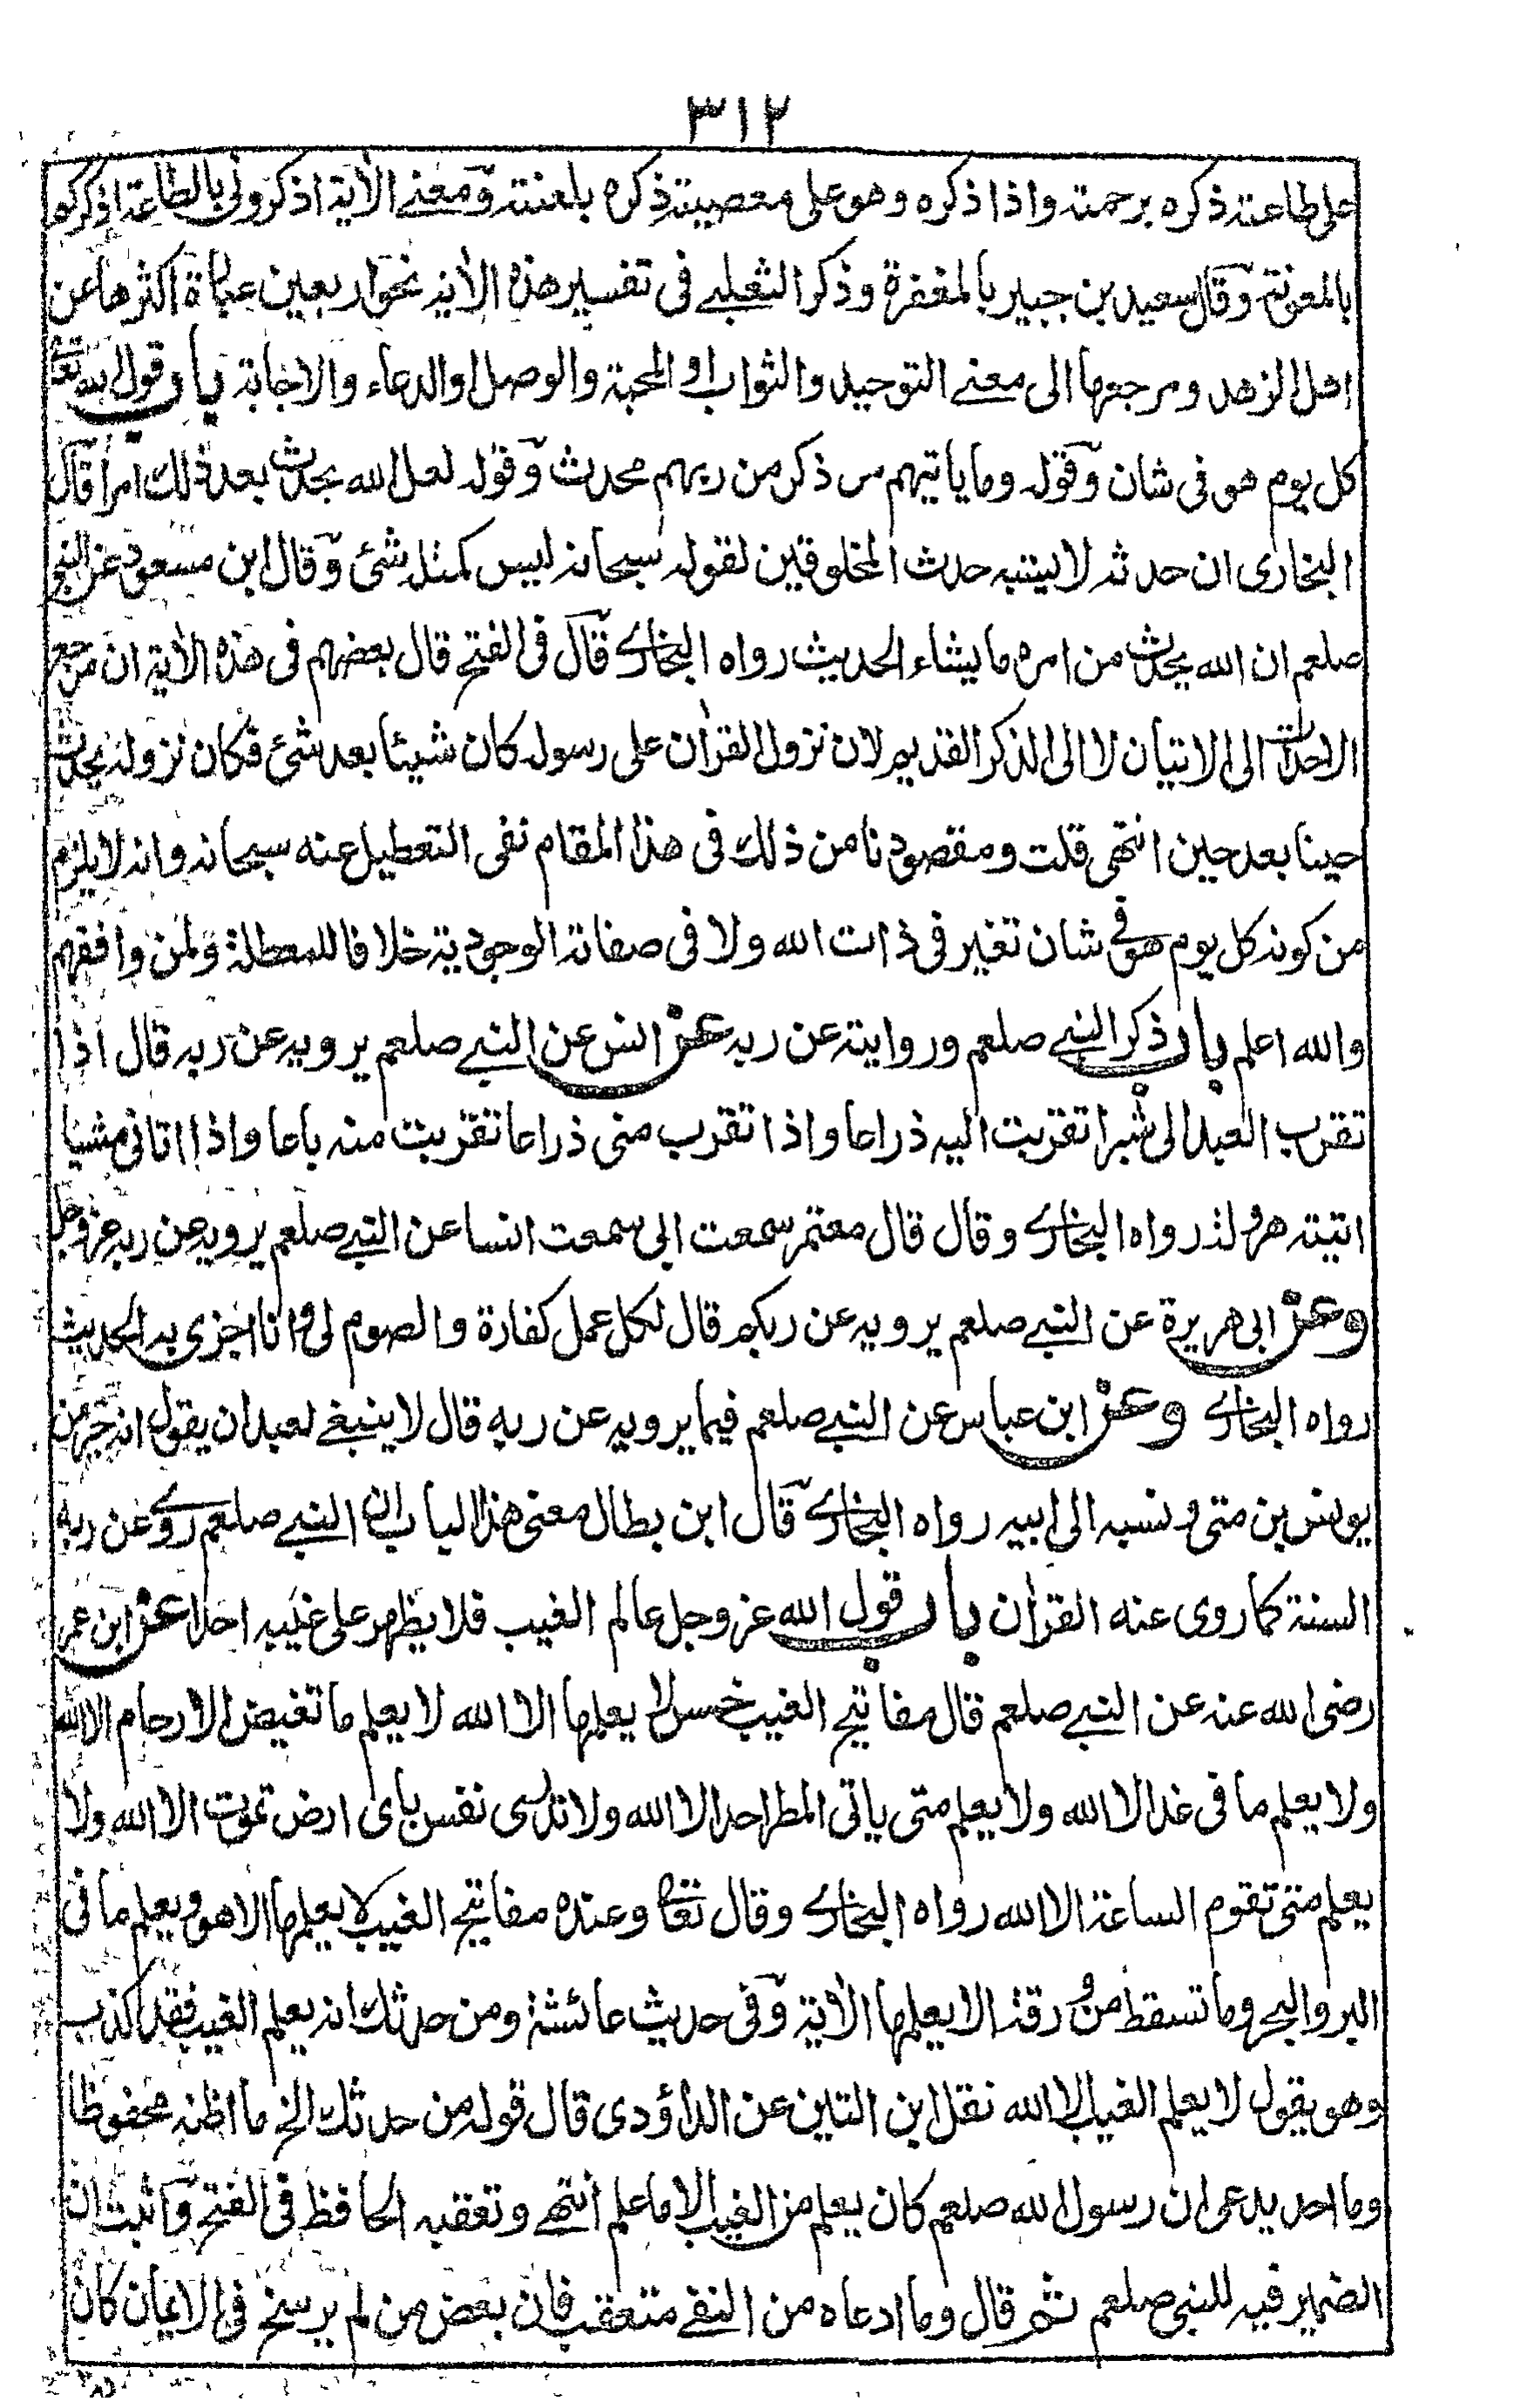 ٣١٢
على طاعته ذكره برحمته واذا ذكره وهو على معصيته ذكره بلعنته ومعنى الآية اذكروني بالطاعة اذكركم
بالمعونة وقال سعيد بن جبير بالمغفرة وذكر الثعلبي في تفسير هذه الآية نحو اربعين عبارة اكثرها عن
اهل الزهد ومرجعها الى معنى التوحيد والثواب او المحبة والوصل او الدعاء والاجابة باب قول الله تعالى
كل يوم هو في شان وقوله وما ياتيهم من ذكر من ربهم محدث وقوله لعل الله يحدث بعد ذلك امرا قال
البخاري ان حدثه لا يشبه حدث المخلوقين لقوله سبحانه ليس كمثله شئ وقال ابن مسعود عن النبي
صلعم ان الله يحدث من امره ما يشاء الحديث رواه البخاري قال في الفتح قال بعضهم في هذه الآية ان مرجع
الاحداث الى الاتيان لا الى الذكر القديم لان نزول القرآن على رسوله كان شيئا بعد شئ فكان نزوله يحدث
حينا بعد حين انتهى قلت ومقصودنا من ذلك في هذا المقام نفى التعطيل عنه سبحانه وانه لا يلزم
من كونه كل يوم هو في شان تغير في ذات الله ولا في صفاته الوجودية خلافا للمعطلة ولمن وافقهم
والله اعلم باب ذكر النبي صلعم وروايته عن ربه عن انس عن النبي صلعم يرويه عن ربه قال اذا
تقرب العبد الى شبرا تقربت اليه ذراعا واذا تقرب منى ذراعا تقربت منه باعا واذا اتانى مشيا
اتيته هرولة رواه البخاري وقال قال معتمر سمعت ابي سمعت انسا عن النبي صلعم يرويه عن ربه عز وجل
وعن ابي هريرة عن النبي صلعم يرويه عن ربكم قال لكل عمل كفارة والصوم لي وانا اجزى به الحديث
رواه البخاري وعن ابن عباس عن النبي صلعم فيما يرويه عن ربه قال لا ينبغي لعبد ان يقول انه خير من
يونس بن متى ونسبه الى ابيه رواه البخاري قال ابن بطال معنى هذا الباب ان النبي صلعم روى عن ربه
السنة كما روى عنه القرآن باب قول الله عز وجل عالم الغيب فلا يظهر على غيبه احدا عن ابن عمر
رضى الله عنه عن النبي صلعم قال مفاتيح الغيب خمس لا يعلمها الا الله لا يعلم ما تغيض الارحام الا الله
ولا يعلم ما في غد الا الله ولا يعلم متى ياتي المطر احد الا الله ولا تدرى نفس باى ارض تموت الا الله ولا
يعلم متى تقوم الساعة الا الله رواه البخاري وقال تعالى وعنده مفاتيح الغيب لا يعلمها الا هو ويعلم ما في
البر والبحر وما تسقط من ورقة الا يعلمها الآية وفي حديث عائشة ومن حدثك انه يعلم الغيب فقد كذب
وهو يقول لا يعلم الغيب الا الله نقل ابن التين عن الداؤدى قال قوله من حدثك الخ ما اظنه محفوظا
وما احد يدعى ان رسول الله صلعم كان يعلم من الغيب الا ما علم انتهى وتعقبه الحافظ في الفتح واثبت ان
الضمير فيه للنبي صلعم ثم قال وما ادعاه من النفى متعقب فان بعض من لم يرسخ في الايمان كان